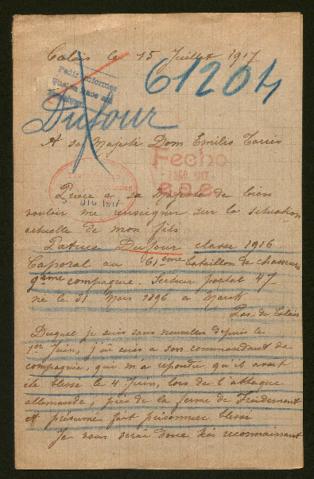 Calais le 15 Juillet 1917
61204
Dufour
A sa Majesté Dom Emilio Torres
Fecho
808
Prière a sa Majesté de bien
vouloir me renseigner sur la situation
actuelle de mon fils
Patrice Dufour classe 1916
Caporal au 61ème Bataillon de chasseurs
9ème compagnie. Secteur postal 47
né le 31 Mars 1896 a Marck
Pas de Calais
Duquel je suis sans nouvelles depuis le
1er Juin, j'ai écris a son commandant de
compagnie, qui m'a repondu qu'il avait
été blessé le 4 Juin, lors de l'attaque
allemande, près de la ferme de
et présumé fait prisonnier blessé
Je vous serai donc très reconnaissant